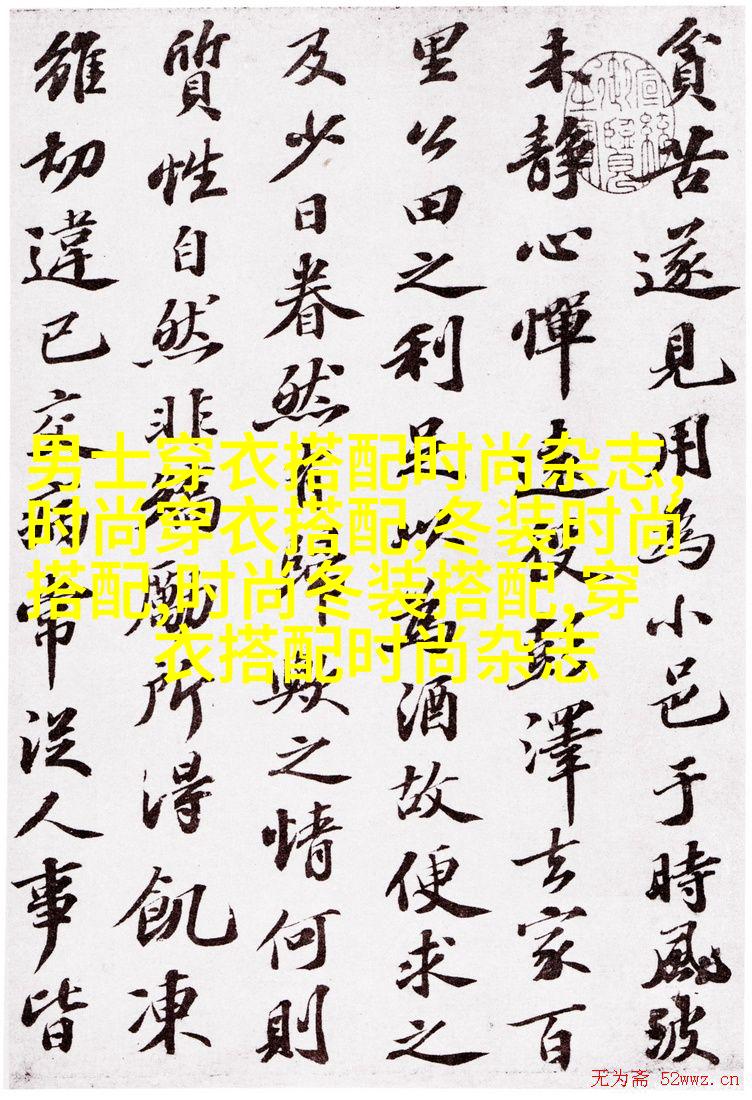 貧苦遂見用為小邑于時風波
未靜心憚遠役彭澤去家百
里公田之利足以為酒故便求之
及少日眷然有歸歟之情何則
質性自然非矯勵所得飢凍
雖切違己交病常從人事皆
男士穿衣搭配时尚杂志,
时尚穿衣搭配,冬装时尚
搭配,时尚冬装搭配,穿
衣搭配时尚杂志
无为斋 52wwz.cn